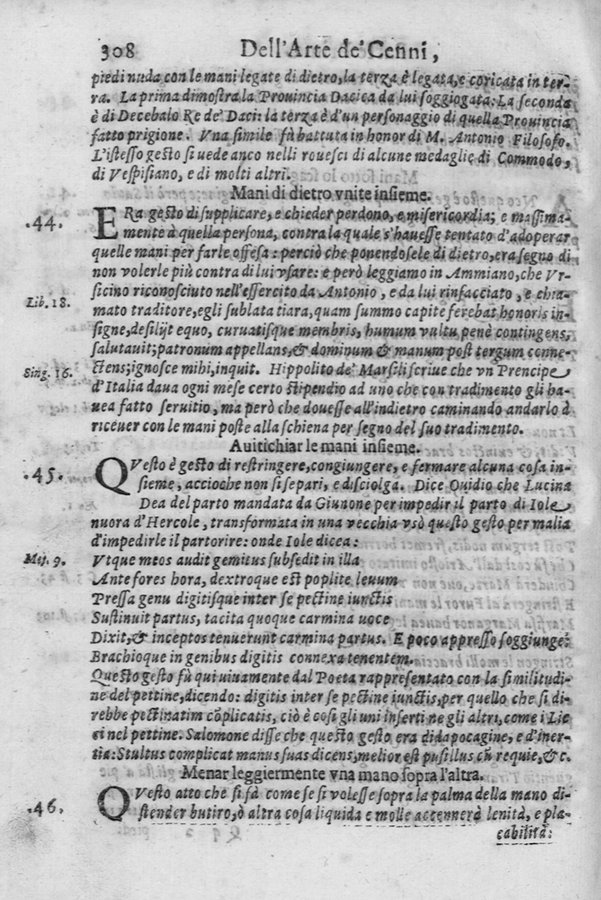 308 Dell'Arte de' Cenni,
piedi nuda con le mani legate di dietro, la terza è legata, e coricata in ter-
ra. La prima dimostra la Prouincia Dacica da lui soggiogata: La seconda
è di Decebalo Re de' Daci: la terza è d'un personaggio di quella Prouincia
fatto prigione. Vna simile fù battuta in honor di M. Antonio Filosofo.
L'istesso gesto si uede anco nelli rouesci di alcune medaglie di Commodo,
di Vespisiano, e di molti altri.
Mani di dietro vnite insieme.
.44. ERa gesto di supplicare, e chieder perdono, e misericordia; e massima-
mente à quella persona, contra la quale s'hauesse tentato d'adoperar
quelle mani per farle offesa: perciò che ponendosele di dietro, era segno di
non volerle più contra di lui vsare: e però leggiamo in Ammiano, che Vr-
sicino riconosciuto nell'essercito da Antonio, e da lui rinfacciato, e chia-
Lib. 18. mato traditore, egli sublata tiara, quam summo capite ferebat honoris in-
signe, desilijt equo, curuatisque membris, humum vultu penè contingens,
salutauit; patronum appellans, & dominum & manum post tergum conne-
Sing. 16. ctens; ignosce mihi, inquit. Hippolito de' Marsili scriue che vn Prencipe
d'Italia daua ogni mese certo stipendio ad uno che con tradimento gli ha-
uea fatto seruitio, ma però che douesse all'indietro caminando andarlo à
riceuer con le mani poste alla schiena per segno del suo tradimento.
Auitichiar le mani insieme.
.45. QVesto è gesto di restringere, congiungere, e fermare alcuna cosa in-
sieme, accioche non si separi, e disciolga. Dice Ouidio che Lucina
Dea del parto mandata da Giunone per impedir il parto di Iole
nuora d'Hercole, transformata in una vecchia vsò questo gesto per malia
d'impedirle il partorire: onde Iole dicea:
Met. 9. Vtque meos audit gemitus subsedit in illa
Ante fores hora, dextroque est poplite leuum
Pressa genu digitisque inter se pectine iunctis
Sustinuit partus, tacita quoque carmina uoce
Dixit, & inceptos tenuerunt carmina partus. E poco appresso soggiunge:
Brachioque in genibus digitis connexa tenentem.
Questo gesto fù qui uiuamente dal Poeta rappresentato con la similitudi-
ne del pettine, dicendo: digitis inter se pectine iunctis, per quello che si di-
rebbe pectinatim cõplicatis, ciò è cosi gli uni inserti ne gli altri, come i Lic
ci nel pettine. Salomone disse che questo gesto era didapocagine, e d'iner-
tia: Stultus complicat manus suas dicens, melior est pusillus cũ requie, & c.
Menar leggiermente vna mano sopra l'altra.
.46. QVesto atto che si fà come se si volesse sopra la palma della mano di-
stender butiro, ò altra cosa liquida e molle accennerà lenità, e pla-
cabilità: